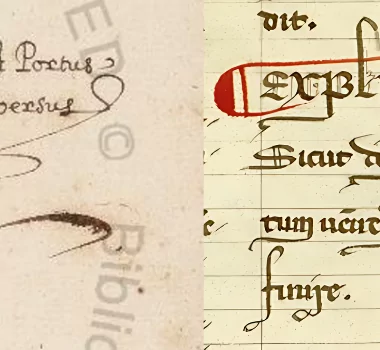 t Portus
versus
dit.
Expl
Sicut d
tum
finire.